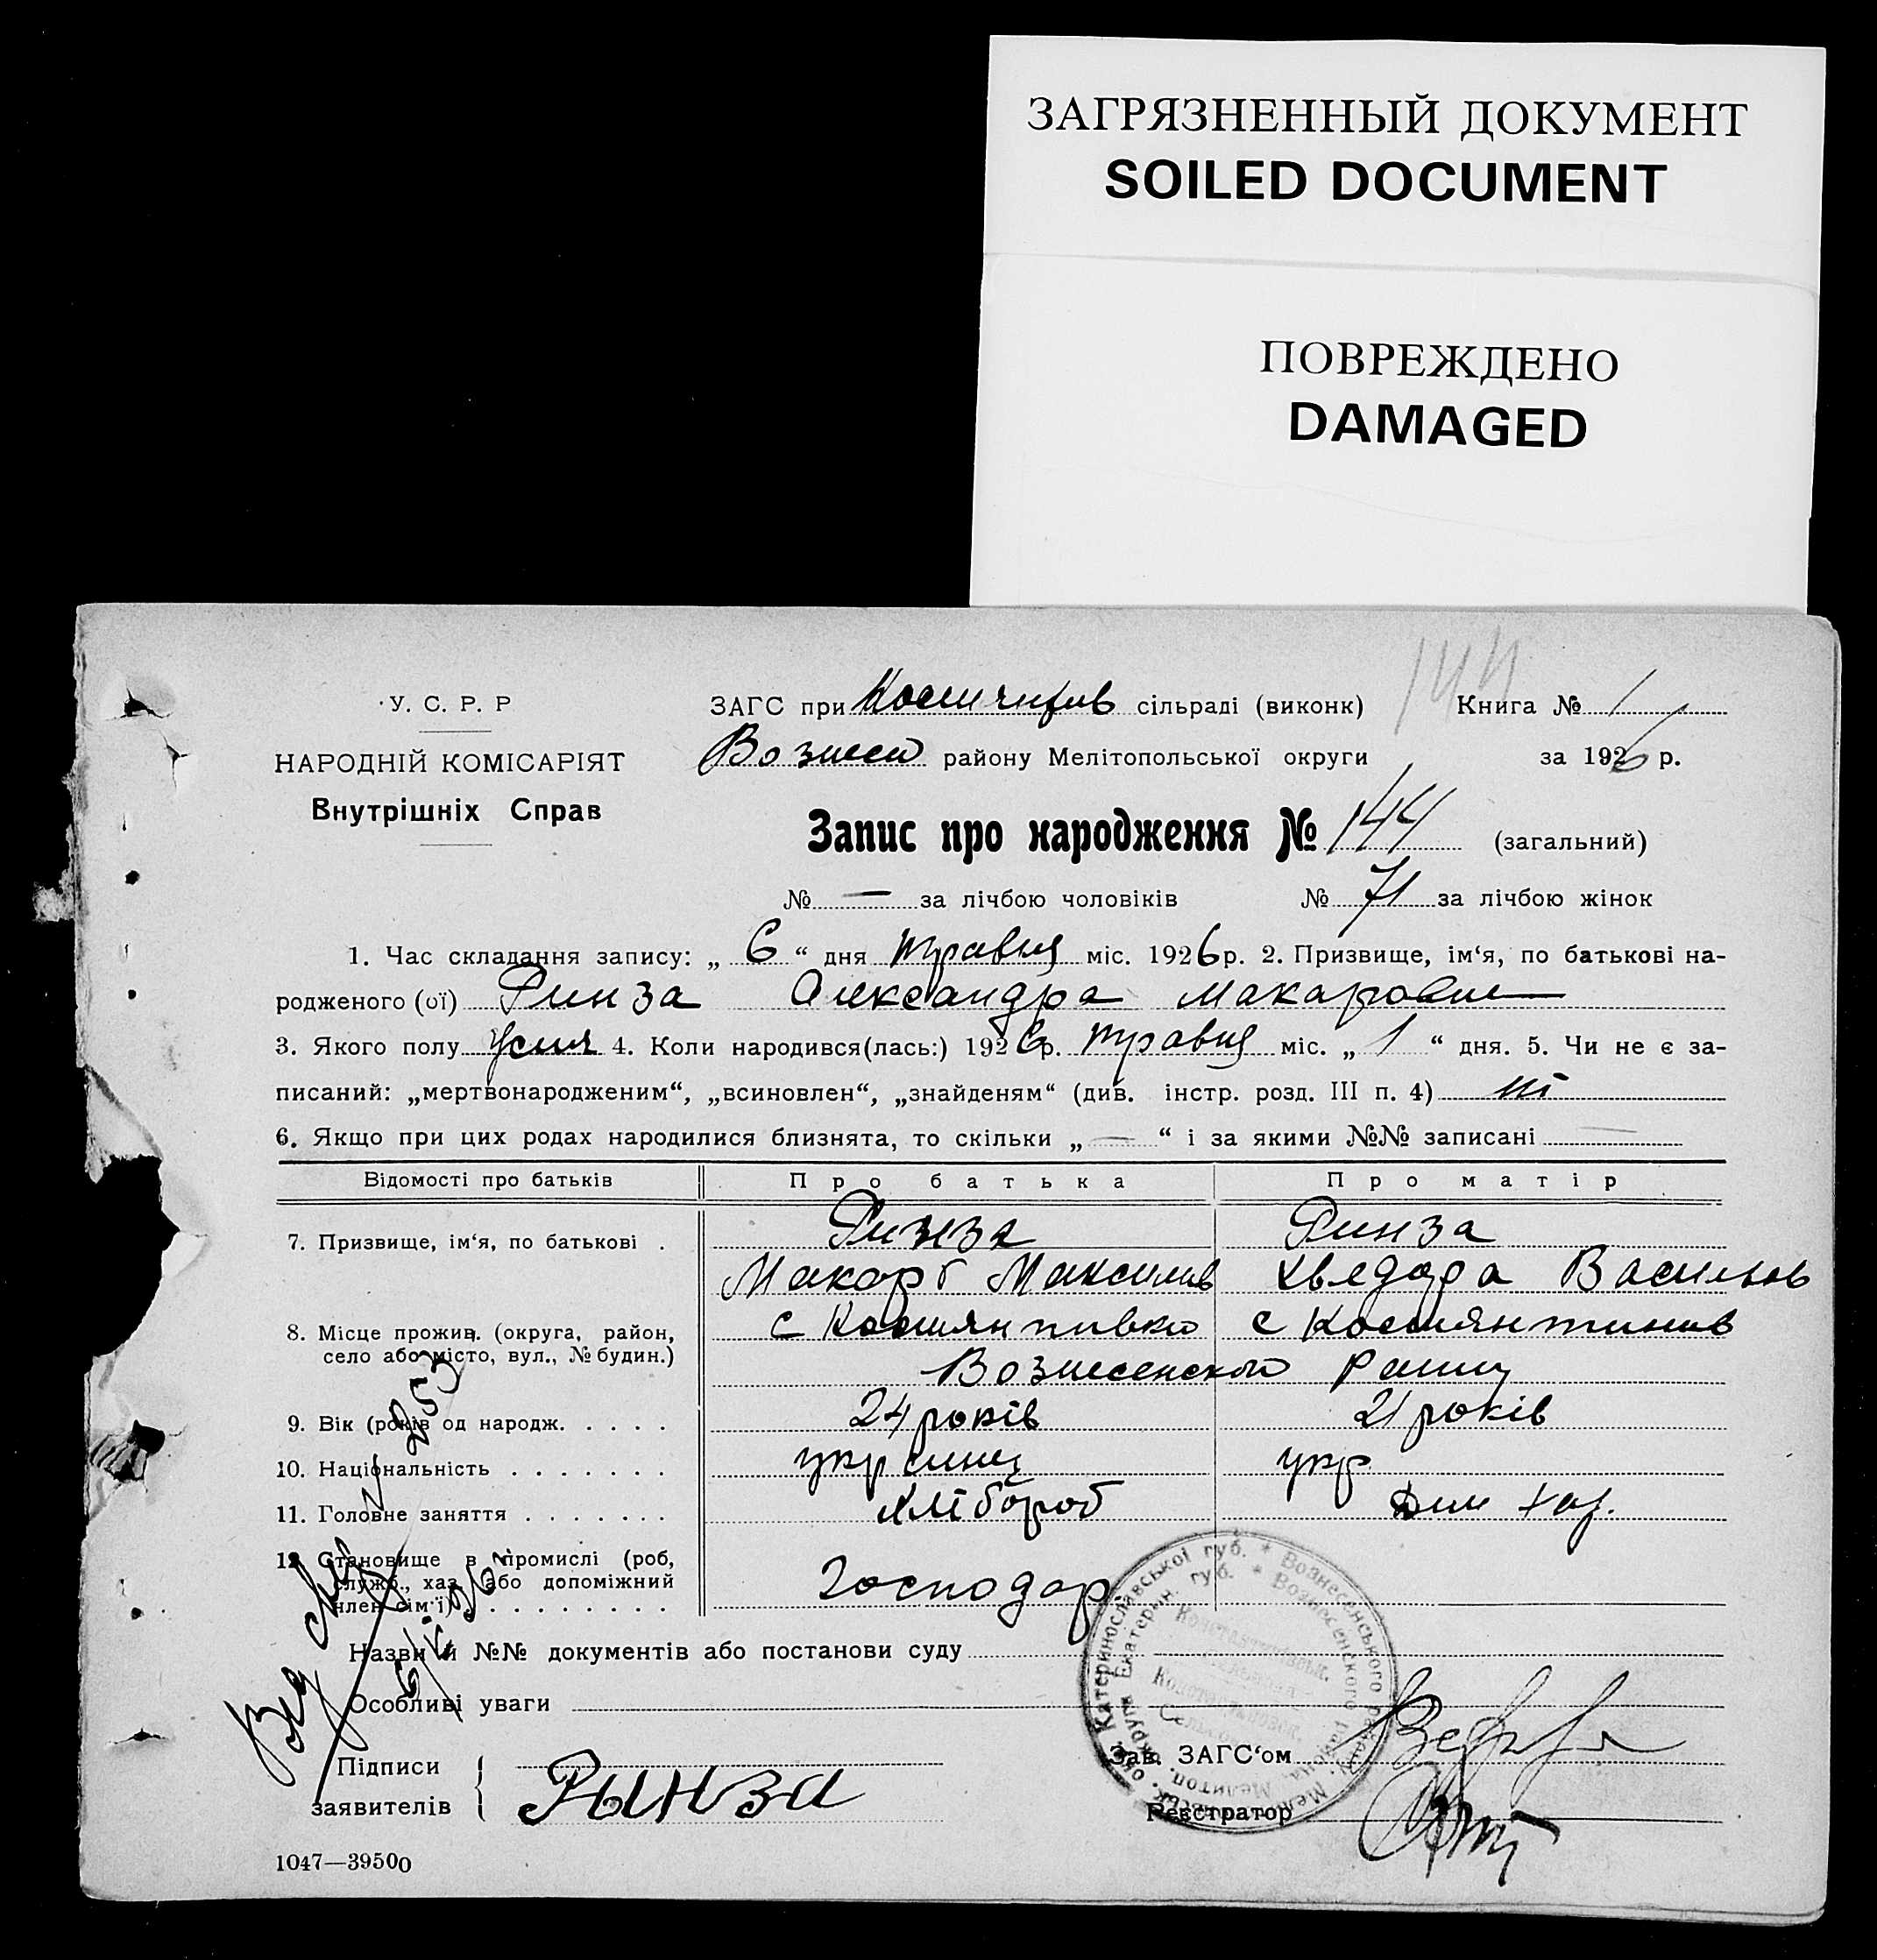 ЗАГРЯЗНЕННЫЙ ДОКУМЕНТ
SOILED DOCUMENT
ПОВРЕЖДЕНО
DAMAGED
144
У. С. Р. Р
НАРОДНІЙ КОМІСАРІЯТ
Внутрішніх Справ
ЗАГС при сільраді (виконк) Книга № 1
Вознесен району Мелітопольської округи за 1926 р.
Запис про народження № 144 (загальний)
№ — за лічбою чоловіків № 71 за лічбою жінок
1. Час складання запису: „ 6 “ дня травня міс. 1926 р. 2. Призвище, ім‘я, по батькові на-
родженого (ої) Ринза Александра Макаровна
3. Якого полу 4. Коли народився(лась:) 1926 р. травня міс. „ 1 “ дня. 5. Чи не є за-
писаний: „мертвонародженим“, „всиновлен“, „знайденям“ (див. інстр. розд. III п. 4) ні
6. Якщо при цих родах народилися близнята, то скільки „ — “ і за якими №№ записані —
Відомості про батьків Про батька Про матір
7. Призвище, ім‘я, по батькові . Ринза Ринза
Макар Максимів Хведора Васильов
8. Місце прожив. (округа, район, с Костянтивка с Костянтинів
село або місто, вул., № будин.)
Вознесенского Району
9. Вік (років од народж. . . . . 24 років 21 років
10. Національність . . . . . . . укр
11. Головне заняття . . . . . . . Хлібороб Дом хаз.
12. Становище в промислі (роб, Господар
служб., хаз. або допоміжний
член сім‘ї) . . . . . . . . .
Назви й №№ документів або постанови суду
Особливі уваги
Підписи
заявителів Рынза
Зав. ЗАГС‘ом
Реєстратор
1047—39500